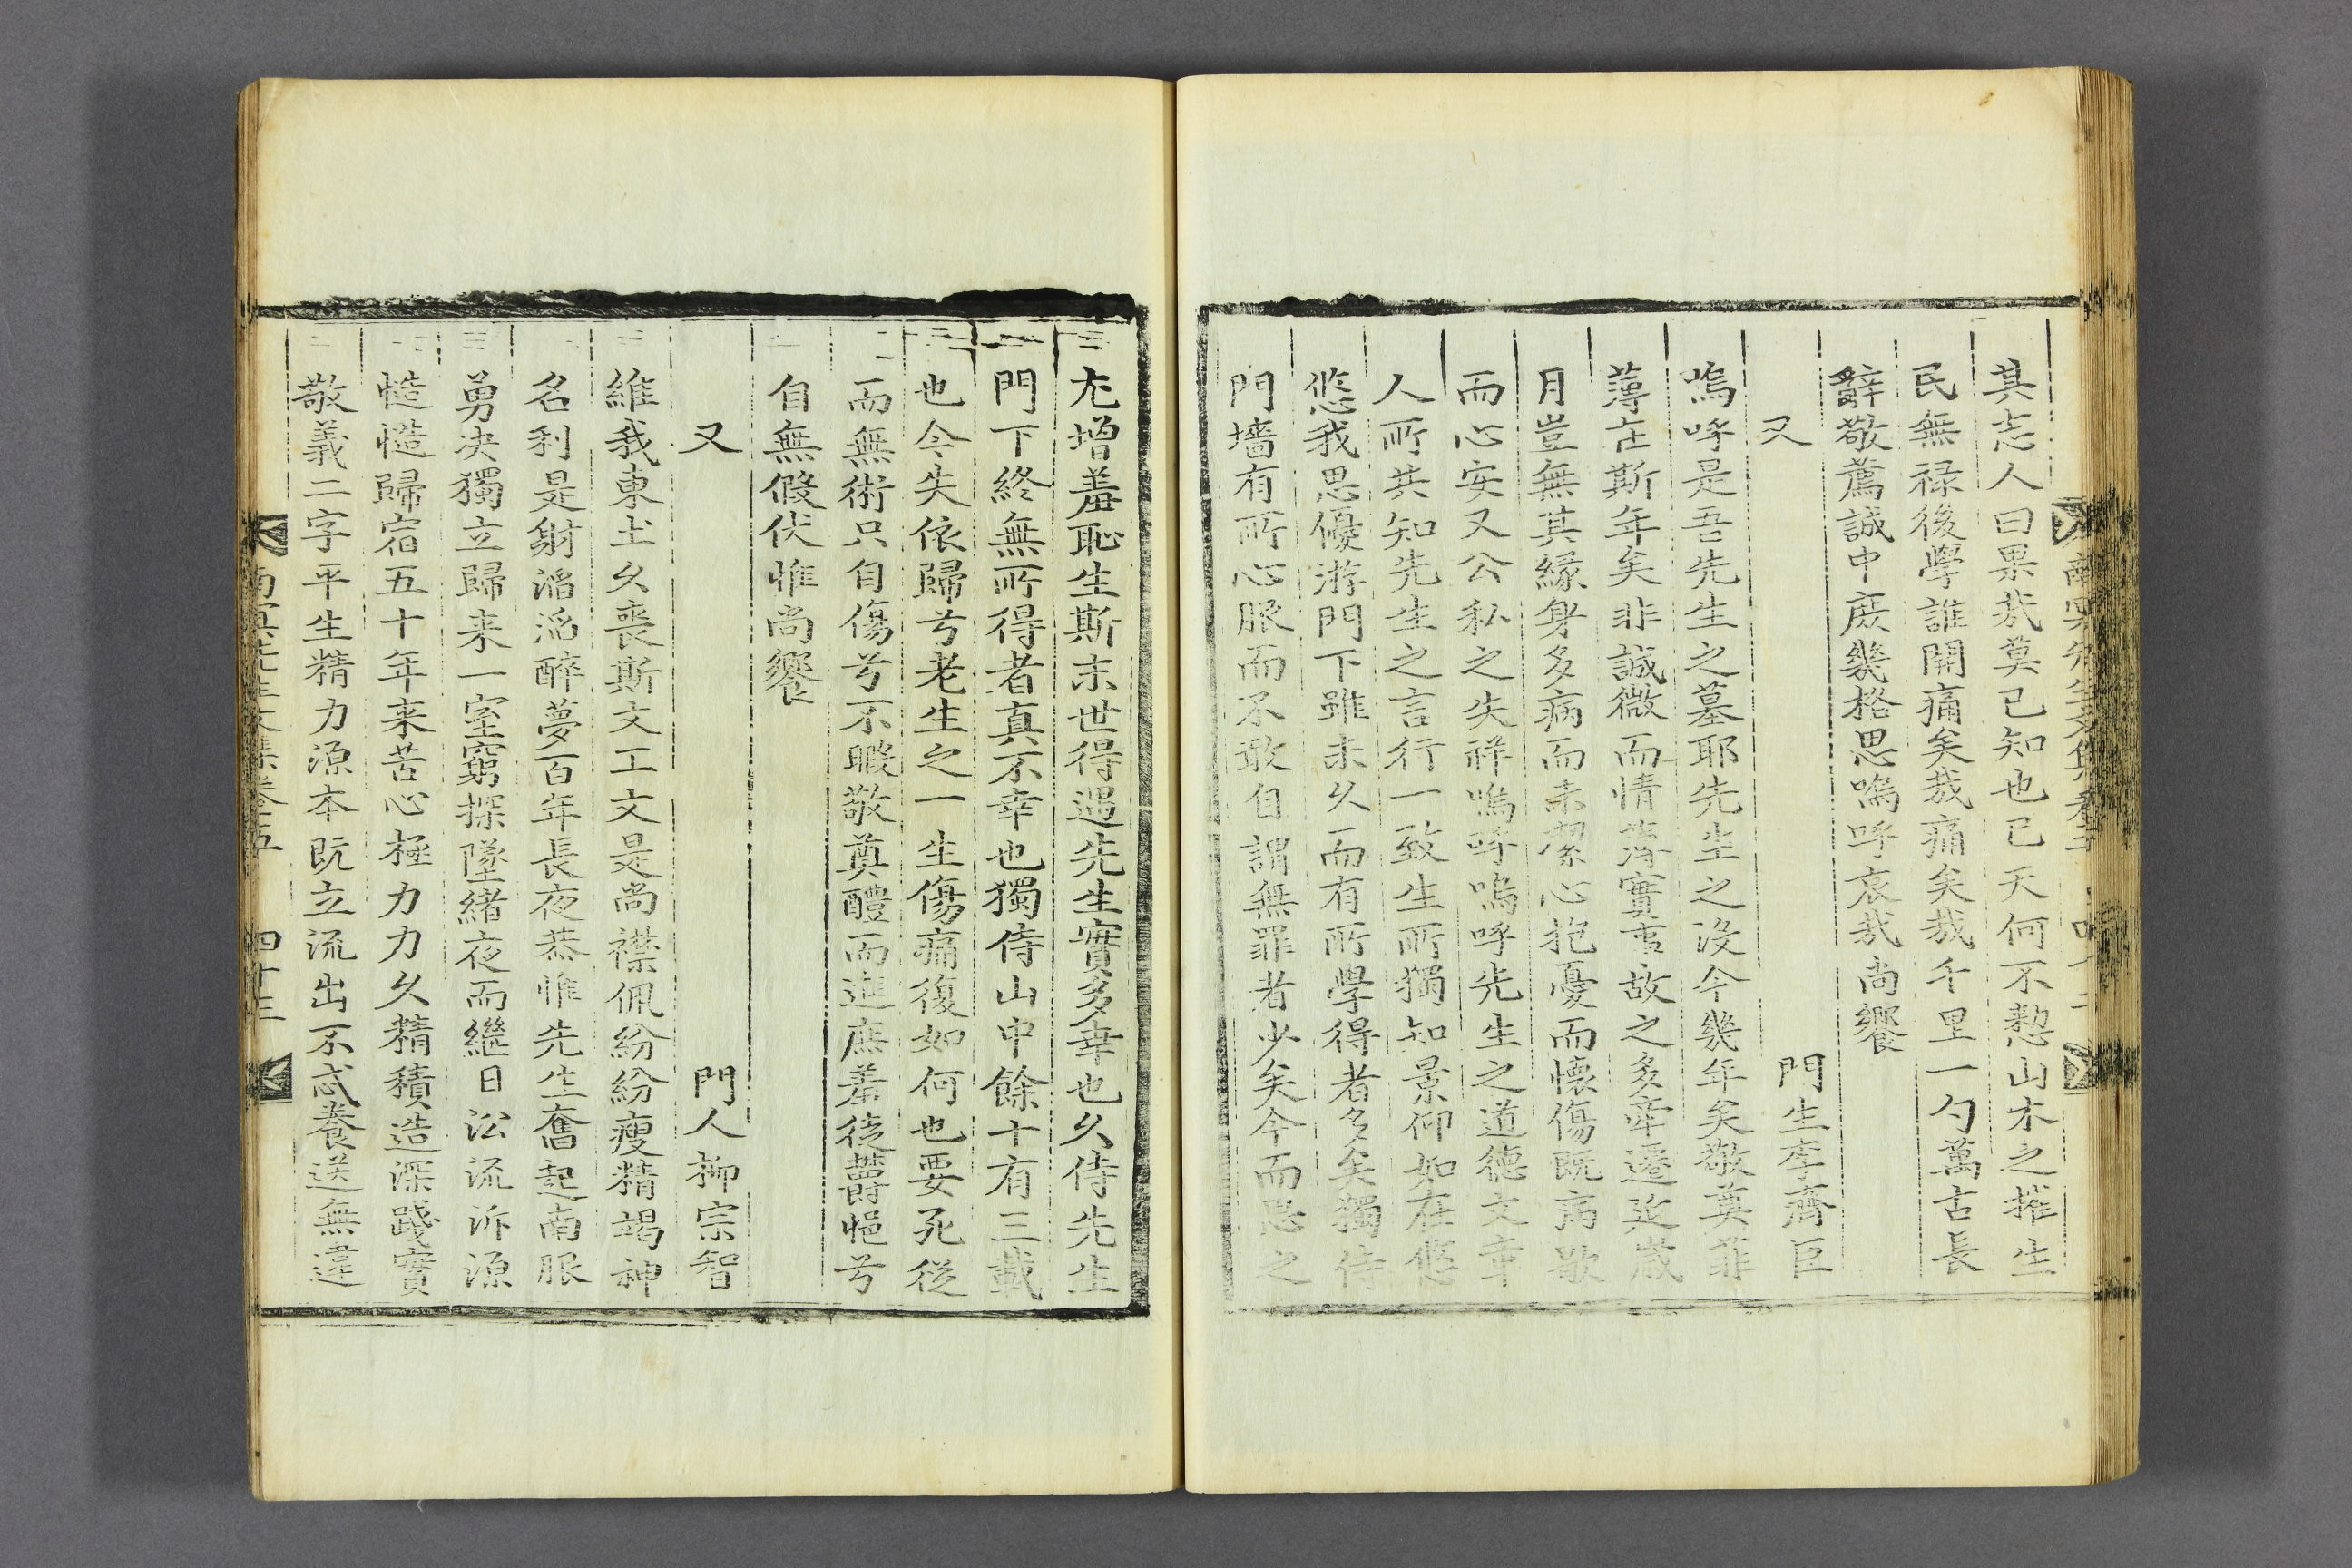 其志人曰果哉莫已知也已天何不憖山木之摧生
民無祿後學誰開痛矣哉痛矣哉千里一勺萬言長
辭敬薦誠中庶幾格思嗚呼哀哉尚饗
又
門生李齊臣
嗚呼是吾先生之墓耶先生之沒今幾年矣敬奠菲
薄在斯年矣非誠微而情薄實事故之多牽遷延歲
月豈無其緣身多病而未潔心抱憂而懷傷既
而心安又公私之失祥嗚呼嗚呼先生之道德文章
人所共知先生之言行一致生所獨知景仰如在悠
悠我思優游門下雖未久而有所學得者多矣獨侍
門墻有所心服而不敢自謂無罪者少矣今而思之
尤增羞恥生斯末世得遇先生實多幸也久侍先生
門下終無所得者真不幸也獨侍山中餘十有三載
也今失依歸兮老生之一生傷痛復如何也要死從
而無術只自傷兮不暇敬奠醴而進庶羞徒鬱悒兮
自無假伏惟尚饗
又
門人柳宗智
維我東土久喪斯文工文是尚襟佩紛紛瘦精竭神
名利是射滔滔醉夢百年長夜恭惟先生奮起南服
勇决獨立歸来一室窮探墜緒夜而繼日沿流泝源
慥慥歸宿五十年来苦心極力力久精積造深踐實
敬義二字平生精力源本既立流出不忒養送無違
南冥先生文集卷五
四十三